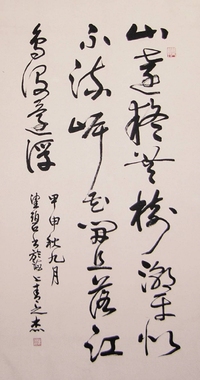 山遠疑無樹潮平似
不流岸花開且落江
鳥沒還浮
甲申秋九月